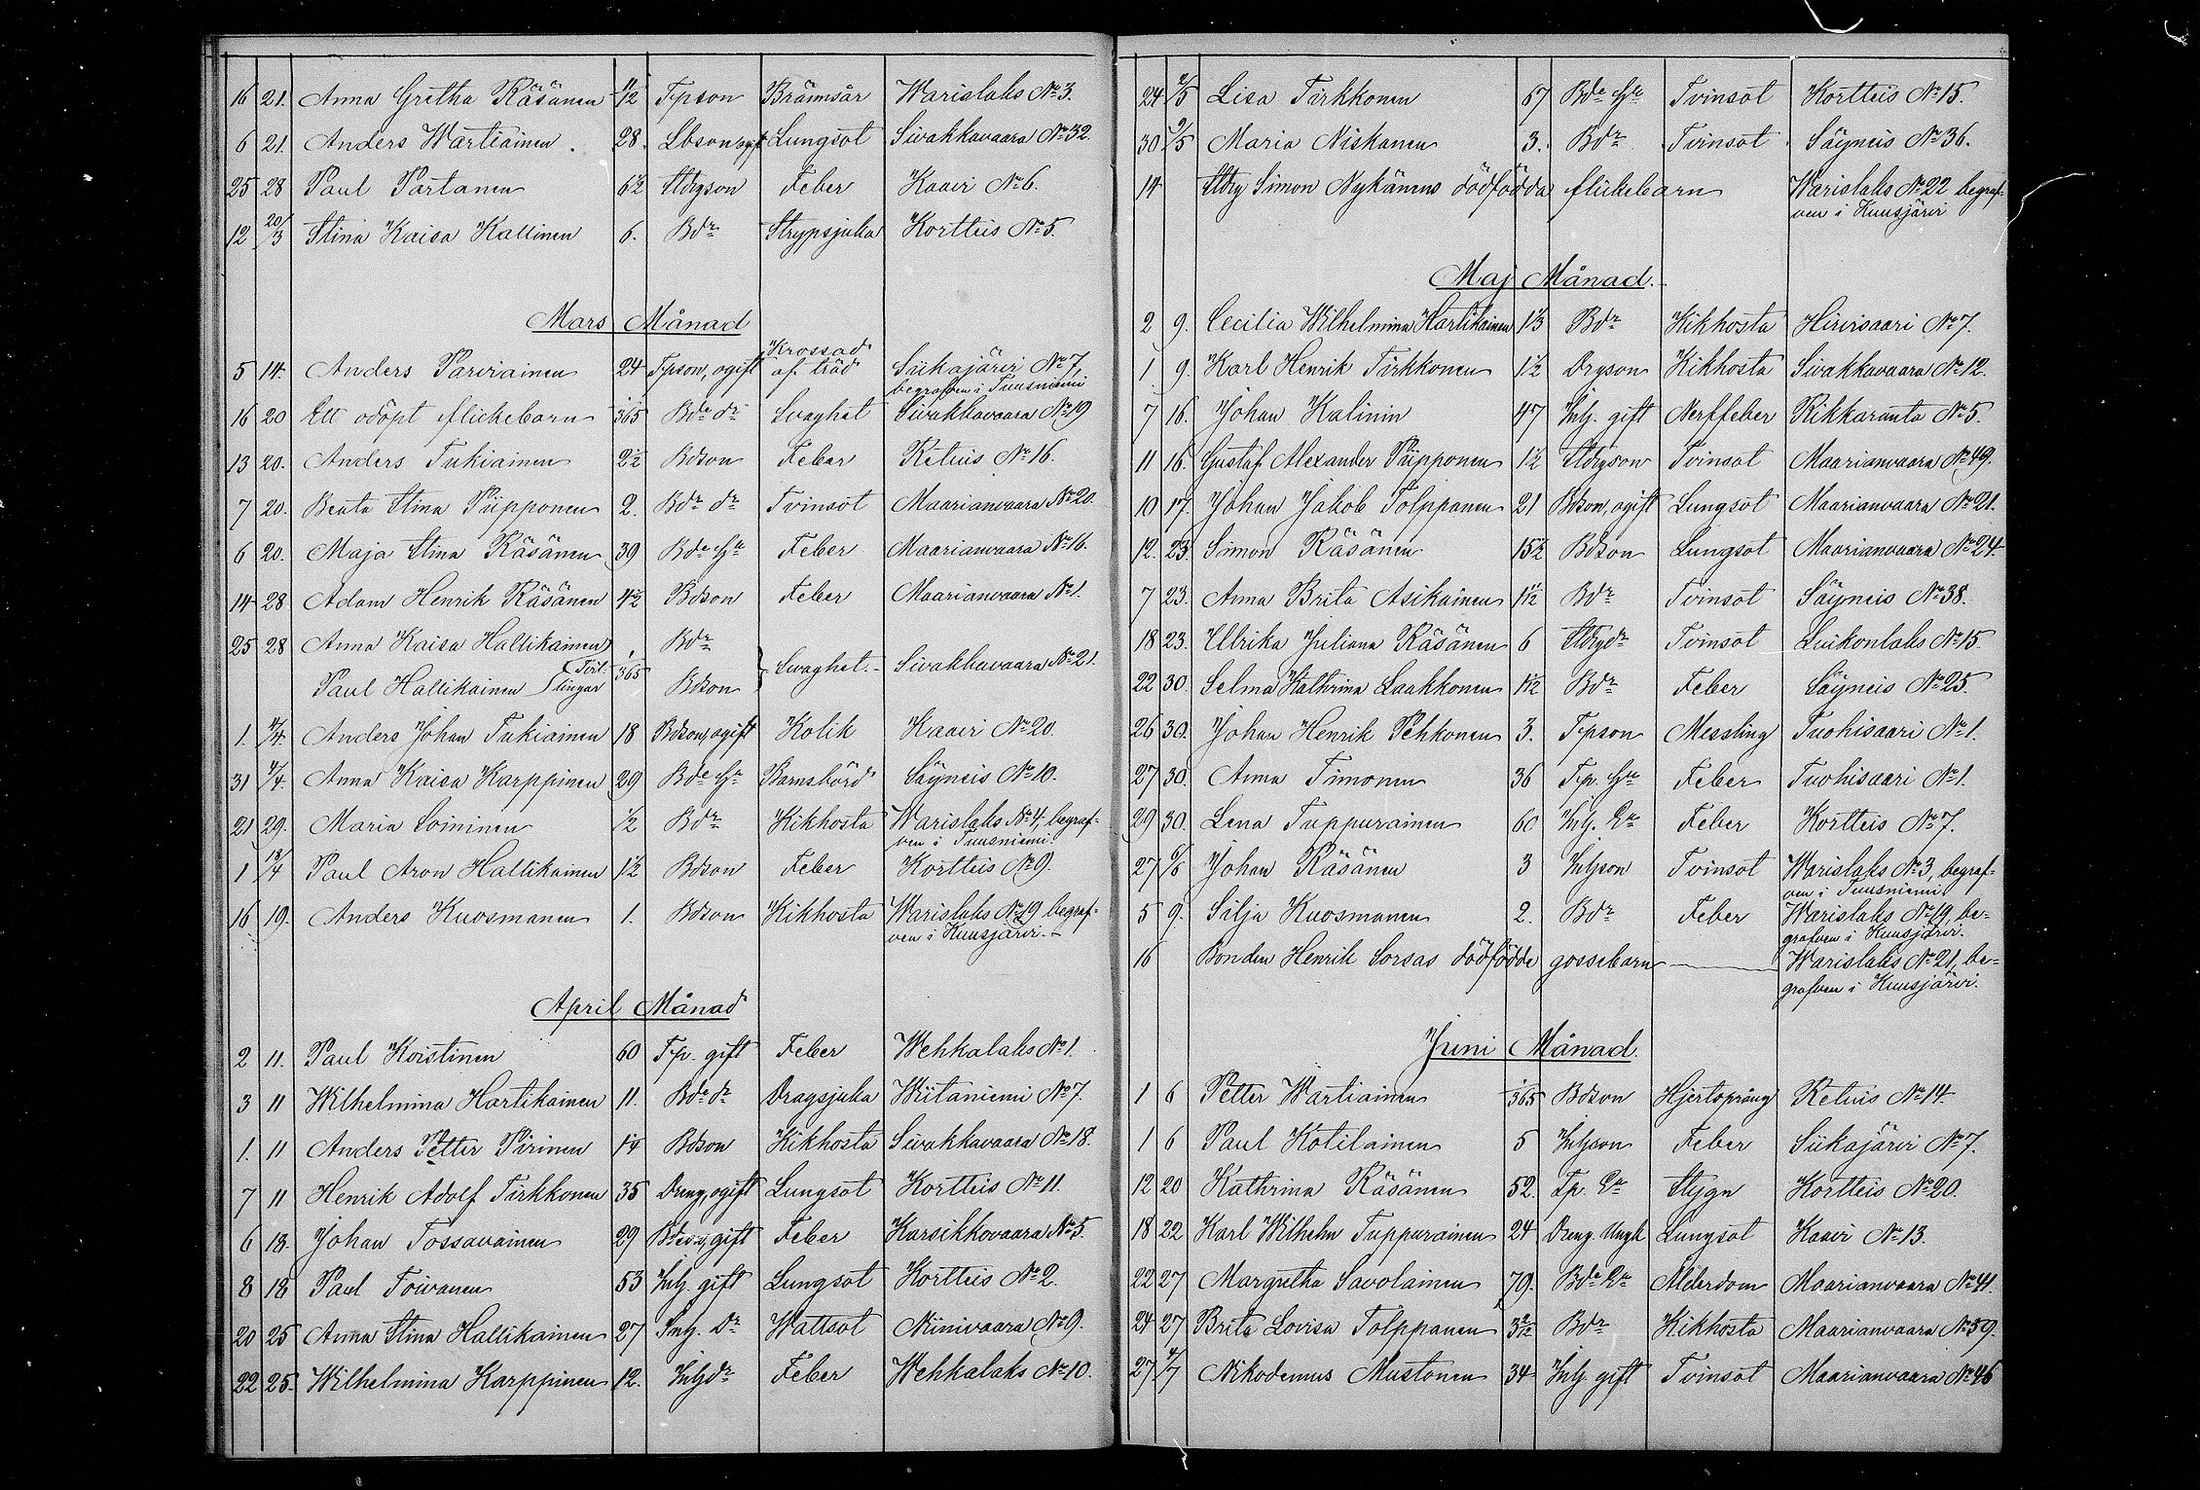 16 21. Anna Gretha Räsänen 11/12 Tpson Brännsår Warislaks No 3.
6 21. Anders Wartiainen. 28. Lbson ogift Lungsot Sivakkavaara No 32.
25 28 Paul Partanen 6 1/2 Stdryson Feber Kaavi No 6.
12 20/3 Stina Kaisa Kallinen 6. Bdr Strypsjuka Korttis No 5.
Mars Månad
5 14. Anders Parviainen 24 Tpson, ogift Krossad af träd Siikajärvi No 7, begrafven i Tuusniemi
16 20 Ett odöpt flickebarn 1/365 Bde dr Svaghet Sivakkavaara No 19
13 20. Anders Tukiainen 2 1/2 Bdson Feber Retuis No 16.
7 20. Beata Stina Piipponen 2. Bde dr Tvinsot Maarianvaara No 20.
6 20. Maja Stina Räsänen 39 Bde Hu Feber Maarianvaara No 16.
14 28 Adam Henrik Räsänen 4 1/2 Bdson Feber Maarianvaara No 1.
25 28 Anna Kaisa Hallikainen Bdr
Paul Hallikainen Tvillingar 1/365 Bdson Svaghet. Sivakkavaara No 21.
1. 4/4. Anders Johan Tukiainen 18 Bdson, ogift Kolik Kaavi No 20.
31 4/4. Anna Kaisa Karppinen 29 Bde Hu Barnsbörd Säyneis No 10.
21 29. Maria Soininen 1/2 Bdr Kikhosta Warislaks No 4, begrafven i Tuusniemi.
1 18/4 Paul Aron Hallikainen 1 1/2 Bdson Feber Korttis No 9.
16 19. Anders Kuosmanen 1. Bdson Kikhosta Warislaks No 19 begrafven i Kuusjärvi.
April Månad
2 11. Paul Koistinen 60 Tp. gift Feber Wehkalaks No 1.
3 11 Wilhelmina Hartikainen 11. Bde dr Dragsjuka Wiitaniemi No 7.
1. 11 Anders Petter Pirinen 1/4 Bdson Kikhosta Sivakkavaara No 18.
7 11 Henrik Adolf Tirkkonen 35 Dreng, ogift Lungsot Korttis No 11.
6 18. Johan Tossavainen 29 gift Feber Karsikkovaara No 5.
8 18 Paul Toivanen 53 Inhj. gift Lungsot Korttis No 2.
20 25 Anna Stina Hallikainen 27 Dr Wattsot Niinivaara No 9.
22 25. Wilhelmina Karppinen 12. Inhjdr Feber Wehkalaks No 10.
24 2/5 Lisa Tirkkonen 67 Bde Hu Tvinsot Korttis No 15.
30 9/5 Maria Niskanen 3. Bdr Tvinsot Säyneis No 36.
14 Stdry Simon Nykänens dödfödda flickebarn Warislaks No 22 begrafven i Kuusjärvi
Maj Månad.
2 9. Cecilia Wilhelmina Hartikainen 1 1/3 Bdr Kikhosta Hirvisaari No 7.
1 9. Karl Henrik Tirkkonen 1 1/2 Drgson Kikhosta Sivakkavaara No 12.
7 16. Johan Kalinin 47 Inhj. gift Nerffeber Rikkaranta No 5.
11 16. Gustaf Alexander Piipponen 1 1/2 Stdryson Tvinsot Maarianvaara No 49.
10 17. Johan Jakob Tolppanen 21 Bdson, ogift Lungsot Maarianvaara No 21.
12. 23 Simon Räsänen 15 1/2 Bdson Lungsot Maarianvaara No 24.
7 23. Anna Brita Asikainen 1 1/12 Bdr Tvinsot Säyneis No 38.
18 23. Ulrika Juliana Räsänen 6 Stdrydr Tvinsot Luikonlaks No 15.
22 30. Selma Kathrina Laakkonen 1 1/12 Bdr Feber Säyneis No 25.
26 30. Johan Henrik Pehkonen 3. Tpson Messling Tuohisaari No 1.
27 30. Anna Timonen 36 Tp. Hu Feber Tuohisaari No 1.
29 30. Lena Tuppurainen 60 Inhj. Ea Feber Korttis No 7.
27 6/6 Johan Räsänen 3 Inhjson Tvinsot Warislaks No 3, begrafven i Tuusniemi.
5 9. Silja Kuosmanen 2. Bdr Feber Warislaks No 19, begrafven i Kuusjärvi.
16 Bonden Henrik Sorsas dödfödde gossebarn Warislaks No 21, begrafven i Kuusjärvi.
Juni Månad.
1 6 Petter Wartiainen 1/365 Bdson Hjertsprång Retuis No 14.
1 6 Paul Kotilainen 5 Inhjson Feber Siikajärvi No 7.
12 20 Kathrina Räsänen 52. Tp. Ea Stygn Korttis No 20.
18 22 Karl Wilhelm Tuppurainen 24 Dreng. Ungk Lungsot Kaavi No 13.
22 27 Margretha Savolainen 79. Bde Ea Ålderdom Maarianvaara No 41.
24 27 Brita Lovisa Tolppanen 3 2/12 Bdr Kikhosta Maarianvaara No 39.
27 4/7 Nikodemus Mustonen 34 Inhj. gift Tvinsot Maarianvaara No 46